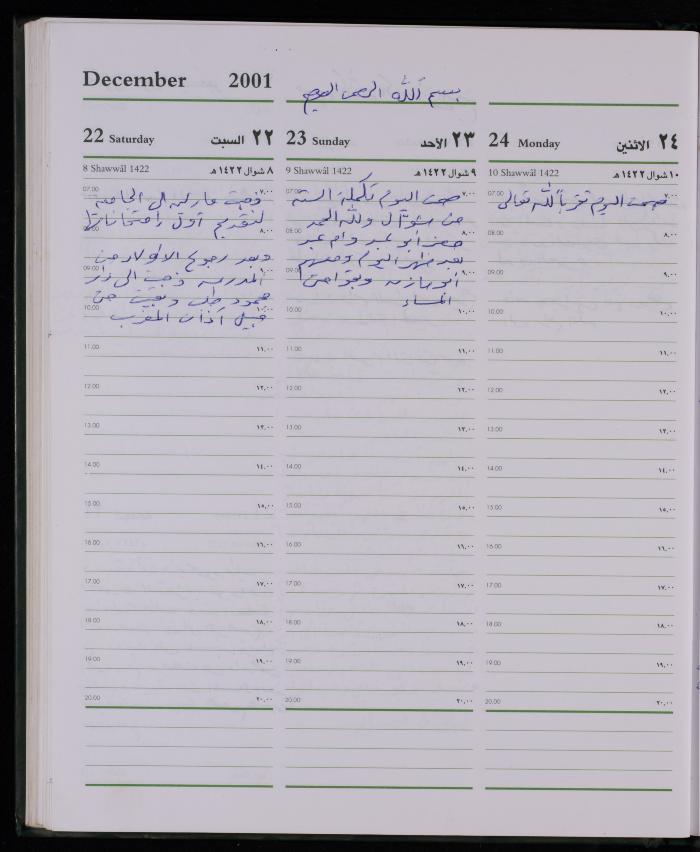 December 2001
بسم الله الرحمن الرحيم
22 Saturday السبت ٢٢
8 Shawwâl 1422 ٨ شوال ١٤٢٢هـ
07.00 ٧,٠٠
ذهبت مارلين الى الجامعة
لتقديم أول امتحاناتها
08.00 ٨,٠٠
وبعد رجوع الاولاد من
09.00 ٩,٠٠
المدرسة ذهبت الى دار
محمود وبقيت حتى
10.00 ١٠,٠٠
قبيل آذان المغرب
11.00 ١١,٠٠
12.00 ١٢,٠٠
13.00 ١٣,٠٠
14.00 ١٤,٠٠
15.00 ١٥,٠٠
16.00 ١٦,٠٠
17.00 ١٧,٠٠
18.00 ١٨,٠٠
19.00 ١٩,٠٠
20.00 ٢٠,٠٠
23 Sunday الأحد ٢٣
9 Shawwâl 1422 ٩ شوال ١٤٢٢هـ
07.00 ٧,٠٠
صمت اليوم تكملة الستة
من شوال ولله الحمد
08.00 ٨,٠٠
حضر ابو عبد وام عبد
بعد ظهر اليوم ومعهم
09.00 ٩,٠٠
ابو وبقوا حتى
المساء
10.00 ١٠,٠٠
11.00 ١١,٠٠
12.00 ١٢,٠٠
13.00 ١٣,٠٠
14.00 ١٤,٠٠
15.00 ١٥,٠٠
16.00 ١٦,٠٠
17.00 ١٧,٠٠
18.00 ١٨,٠٠
19.00 ١٩,٠٠
20.00 ٢٠,٠٠
24 Monday الاثنين ٢٤
10 Shawwâl 1422 ١٠ شوال ١٤٢٢هـ
07.00 ٧,٠٠
صمت اليوم تقرباً لله تعالى
08.00 ٨,٠٠
09.00 ٩,٠٠
10.00 ١٠,٠٠
11.00 ١١,٠٠
12.00 ١٢,٠٠
13.00 ١٣,٠٠
14.00 ١٤,٠٠
15.00 ١٥,٠٠
16.00 ١٦,٠٠
17.00 ١٧,٠٠
18.00 ١٨,٠٠
19.00 ١٩,٠٠
20.00 ٢٠,٠٠